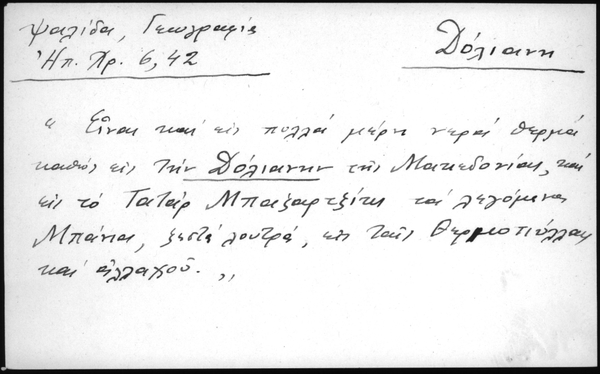 Ψαλίδα, Γεωγραφία
Ἠπ. Χρ. 6, 42
Δόλιανη
" Εἶναι καί εἰς πολλά μέρη νερά θερμά
καθώς εἰς τήν Δόλιανην τῆς Μακεδονίας, καί
εἰς τό Τατάρ Μπαζαρτζίκι τά λεγόμενα
Μπάνια, ζεστά λουτρά, εἰς ταῖς Θερμοπύλλαις
καί ἀλλαχοῦ. "